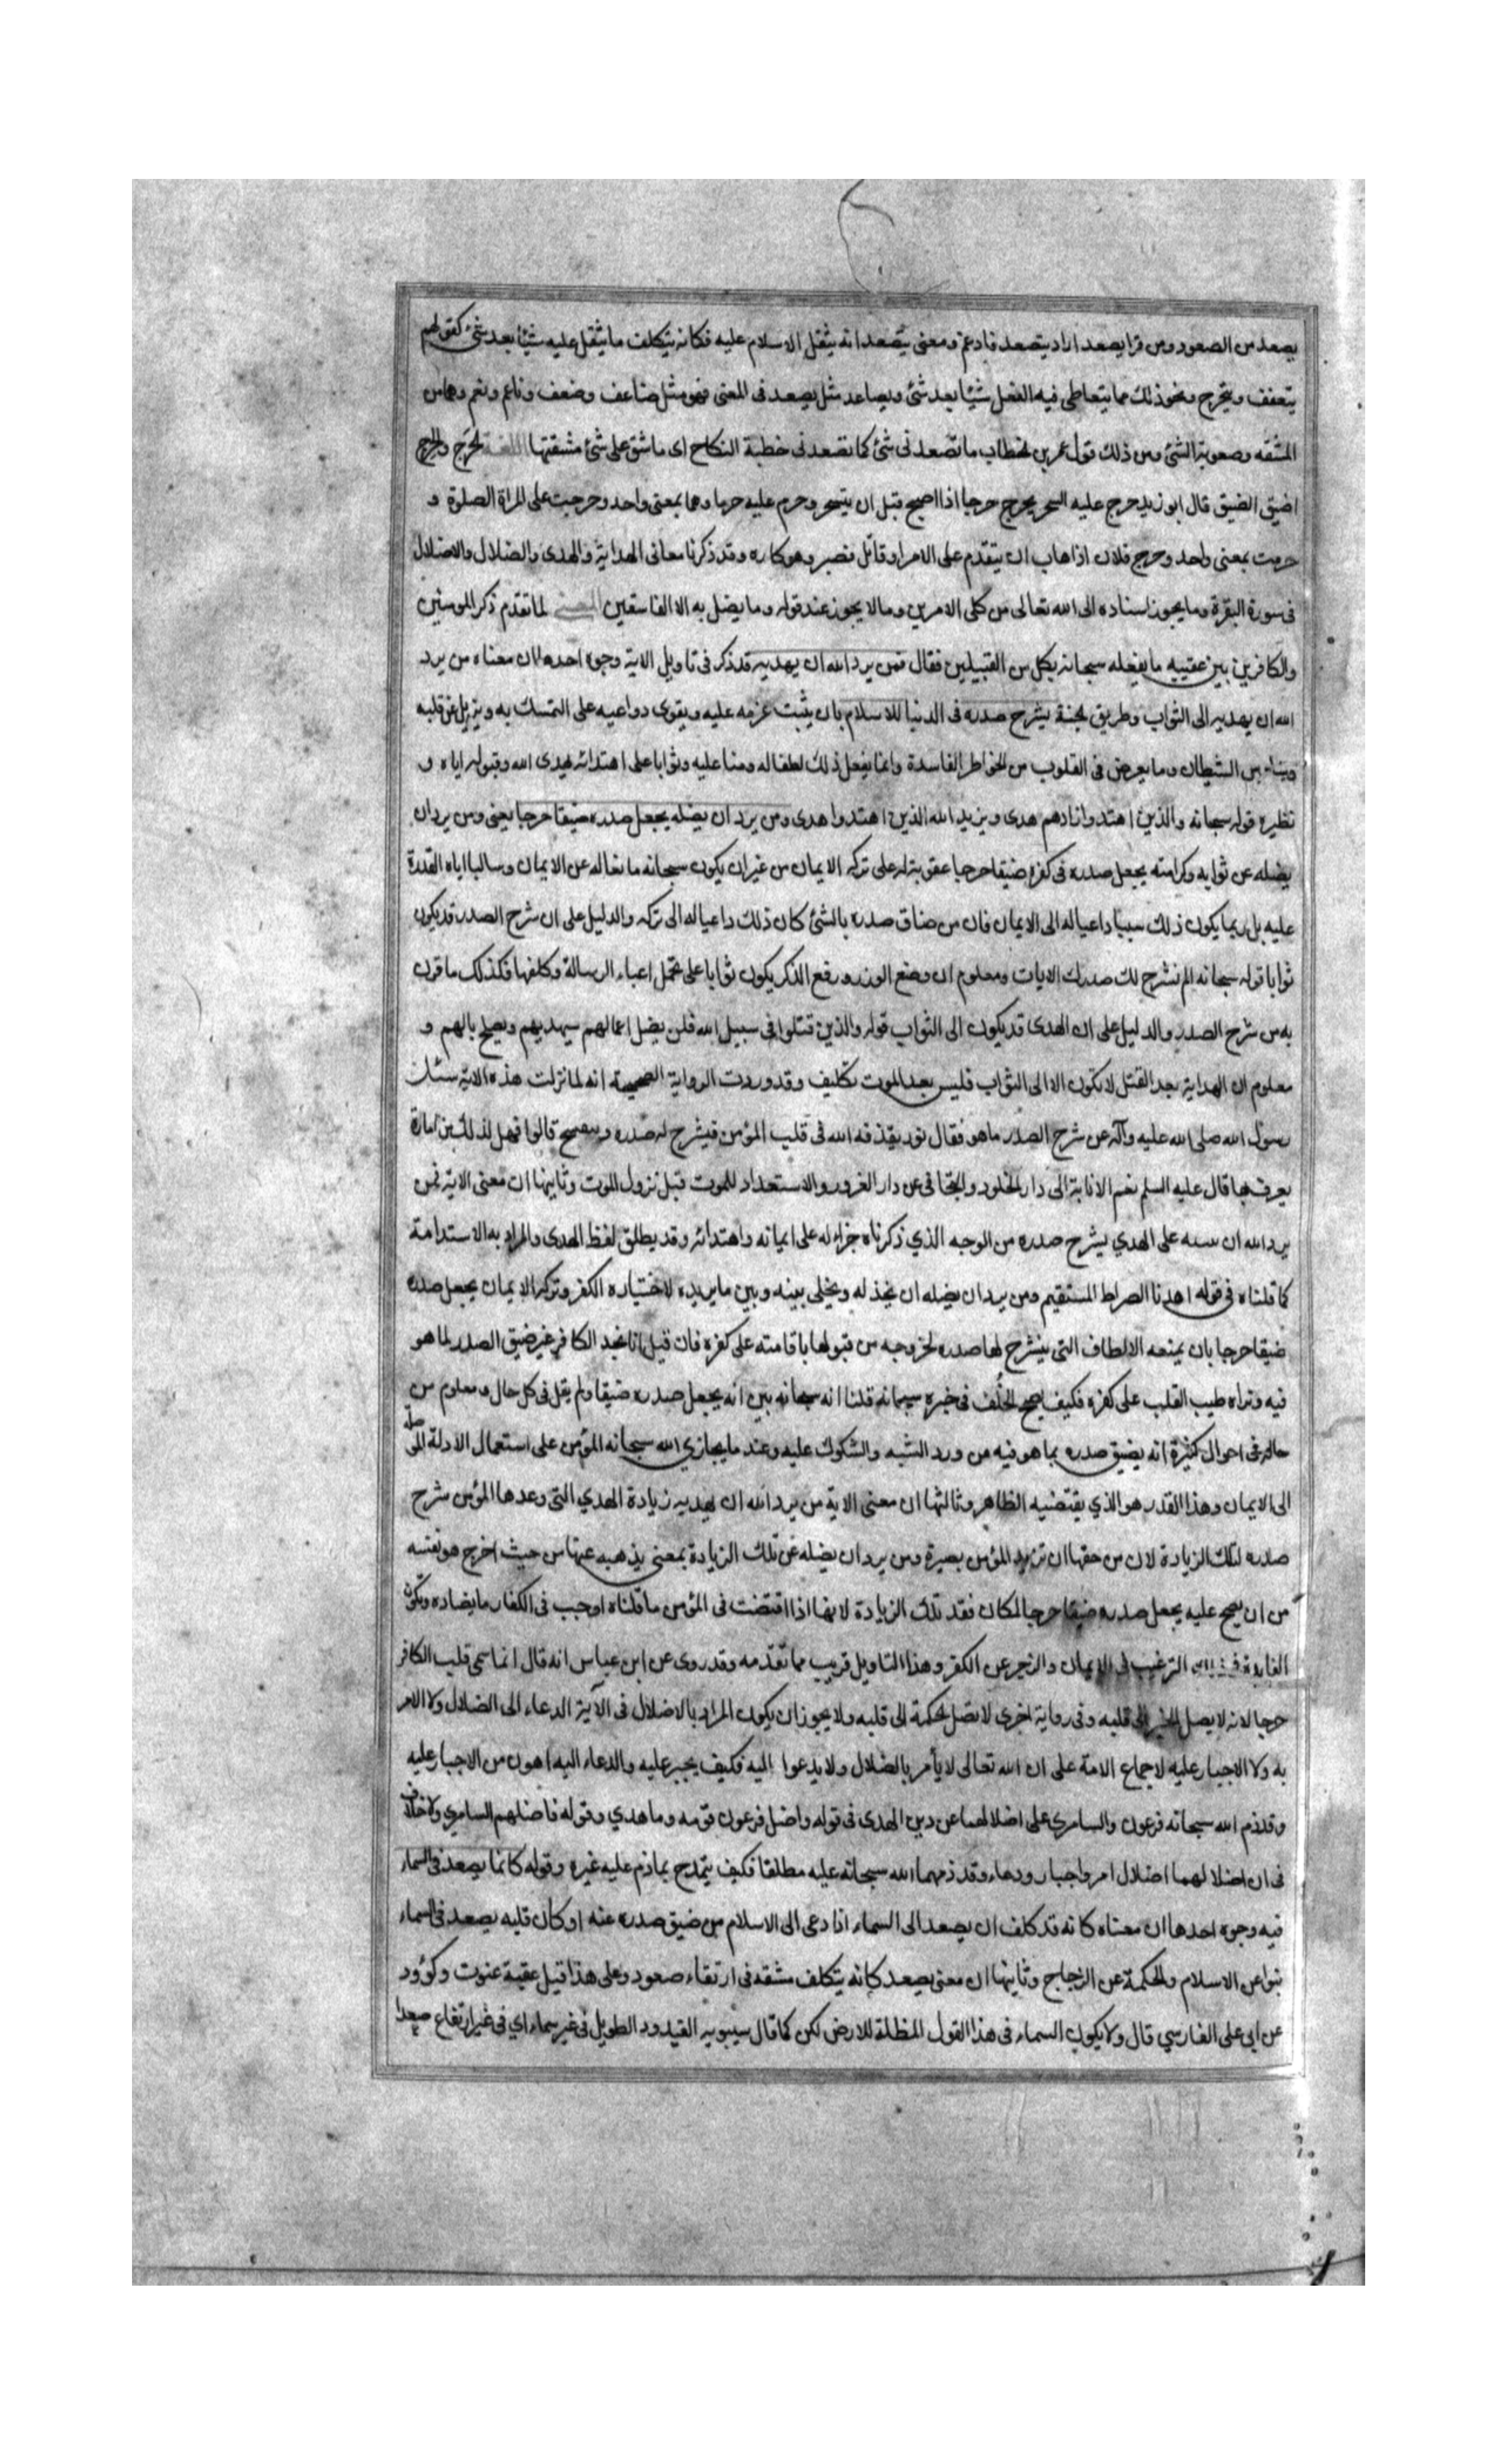 يصعد من الصعود ومن قرا يصعد اراد يتصعد فادغم ومعنى يتصعد انه يثقل الاسلام عليه فكانه يتكلف ما يثقل عليه شيئا بعد شئ كقولهم
يتعفف ويتحرج ونحو ذلك مما يتعاطى فيه الفعل شيئا بعد شئ ويصاعد مثل يصعد فى المعنى فهو مثل ضاعف وضعف وناعم ونعم وهما من
المشقه وصعوبة الشئ ومن ذلك قول عمر بن الخطاب ما تصعد نى شئ كما تصعد نى خطبة النكاح اى ما شق على شئ مشقتها اللغة الحرج والحرج
اضيق الضيق قال ابو زيد حرج عليه السحر يحرج حرجا اذا اصبح قبل ان يتسحر وحرم عليه حرما وهما بمعنى واحد وحرجت على المراة الصلوة و
حرمت بمعنى واحد وحرج فلان اذا هاب ان يتقدم على الامر او قاتل فصبر وهو كاره وقد ذكرنا معانى الهداية والهدى والضلال والاضلال
فى سورة البقرة وما يجوز اسناده الى الله تعالى من كلى الامرين وما لا يجوز عند قوله وما يضل به الا الفاسقين المعنى لما تقدم ذكر المومنين
والكافرين بين عقيبه ما يفعله سبحانه بكل من القبيلين فقال فمن يرد الله ان يهديه قد ذكر فى تاويل الاية وجوه احدها ان معناه من يرد
الله ان يهديه الى الثواب وطريق الجنة يشرح صدره فى الدنيا للاسلام بان يثبت عزمه عليه ويقوى دواعيه على التمسك به ويزيل عن قلبه
وساوس الشيطان وما يعرض فى القلوب من الخواطر الفاسدة وانما يفعل ذلك لطفا له ومنا عليه وثوابا على اهتدائه بهدى الله وقبوله اياه و
نظيره قوله سبحانه والذين اهتدوا زادهم هدى ويزيد الله الذين اهتدوا هدى ومن يرد ان يضله يجعل صدره ضيقا حرجا يعنى ومن يرد ان
يضله عن ثوابه وكرامته يجعل صدره فى كفره ضيقا حرجا عقوبة له على تركه الايمان من غير ان يكون سبحانه مانعا له عن الايمان وسالبا اياه القدرة
عليه بل ربما يكون ذلك سببا داعيا له الى الايمان فان من ضاق صدره بالشئ كان ذلك داعيا له الى تركه والدليل على ان شرح الصدر قد يكون
ثوابا قوله سبحانه الم نشرح لك صدرك الايات ومعلوم ان وضع الوزر ورفع الذكر يكون ثوابا على تحمل اعباء الرسالة وكلفها فكذلك ما قرن
به من شرح الصدر والدليل على ان الهدى قد يكون الى الثواب قوله والذين قتلوا فى سبيل الله فلن يضل اعمالهم سيهديهم ويصلح بالهم و
معلوم ان الهداية بعد القتل لا يكون الا الى الثواب فليس بعد الموت تكليف وقد وردت الرواية الصحيحة انه لما نزلت هذه الاية سئل
رسول الله صلى الله عليه وآله عن شرح الصدر ما هو فقال نور يقذفه الله فى قلب المؤمن فيشرح له صدره وينفسح قالوا فهل لذلك من امارة
يعرف بها قال عليه السلم نعم الانابة الى دار الخلود والتجافى عن دار الغرور والاستعداد للموت قبل نزول الموت وثانيها ان معنى الاية فمن
يرد الله ان يثبته على الهدي يشرح صدره من الوجه الذي ذكرناه جزاء له على ايمانه واهتدائه وقد يطلق لفظ الهدى والمراد به الاستدامة
كما قلناه فى قوله اهدنا الصراط المستقيم ومن يرد ان يضله ان يخذله ويخلى بينه وبين ما يريده لاختياره الكفر وتركه الايمان يجعل صدره
ضيقا حرجا بان يمنعه الالطاف التى ينشرح لها صدره لخروجه من قبولها باقامته على كفره فان قيل انا نجد الكافر غير ضيق الصدر لما هو
فيه ونراه طيب القلب على كفره فكيف يصح الخلف فى خبره سبحانه قلنا انه سبحانه بين انه يجعل صدره ضيقا ولم يقل فى كل حال ومعلوم من
حاله فى احوال كثيرة انه يضيق صدره بما هو فيه من ورد الشبه والشكوك عليه وعند ما يجازي الله سبحانه المؤمن على استعمال الادلة الموصلة
الى الايمان وهذا القدر هو الذي يقتضيه الظاهر وثالثها ان معنى الاية من يرد الله ان يهديه زيادة الهدي التى وعدها المؤمن شرح
صدره لتلك الزيادة لان من حقها ان تزيد المؤمن بصيرة ومن يرد ان يضله عن تلك الزيادة بمعنى يذهبه عنها من حيث اخرج هو نفسه
من ان يصح عليه يجعل صدره ضيقا حرجا لمكان فقد تلك الزيادة لانها اذا اقتضت فى المؤمن ما قلناه اوجب فى الكفار ما يضاده ويكون
الفايدة فى ذلك الترغيب فى الايمان والزجر عن الكفر وهذا التاويل قريب مما تقدمه وقد روى عن ابن عباس انه قال انما سمى قلب الكافر
حرجا لانه لا يصل الخير الى قلبه وفى رواية اخرى لا تصل الحكمة الى قلبه ولا يجوز ان يكون المراد بالاضلال فى الآية الدعاء الى الضلال ولا الامر
به ولا الاجبار عليه لاجماع الامة على ان الله تعالى لا يأمر بالضلال ولا يدعوا اليه فكيف يجبر عليه والدعاء اليه اهون من الاجبار عليه
وقد ذم الله سبحانه فرعون والسامرى على اضلالهما عن دين الهدى فى قوله واضل فرعون قومه وما هدي وقوله فاضلهم السامري ولا خلاف
فى ان اضلالهما اضلال امر واجبار ودعاء وقد ذمهما الله سبحانه عليه مطلقا فكيف يتمدح بما ذم عليه غيره وقوله كانما يصعد فى السماء
فيه وجوه احدها ان معناه كانه قد كلف ان يصعد الى السماء اذا دعى الى الاسلام من ضيق صدره عنه او كان قلبه يصعد فى السماء
نبوا عن الاسلام والحكمة عن الزجاج وثانيها ان معنى يصعد كانه يتكلف مشقه فى ارتقاء صعود وعلى هذا قيل عقبة عنوت وكؤود
عن ابى على الفارسي قال ولا يكون السماء فى هذا القول المظلة للارض لكن كما قال سيبويه القيدود الطويل فى غير سماء اي فى غير ارتفاع صعدا